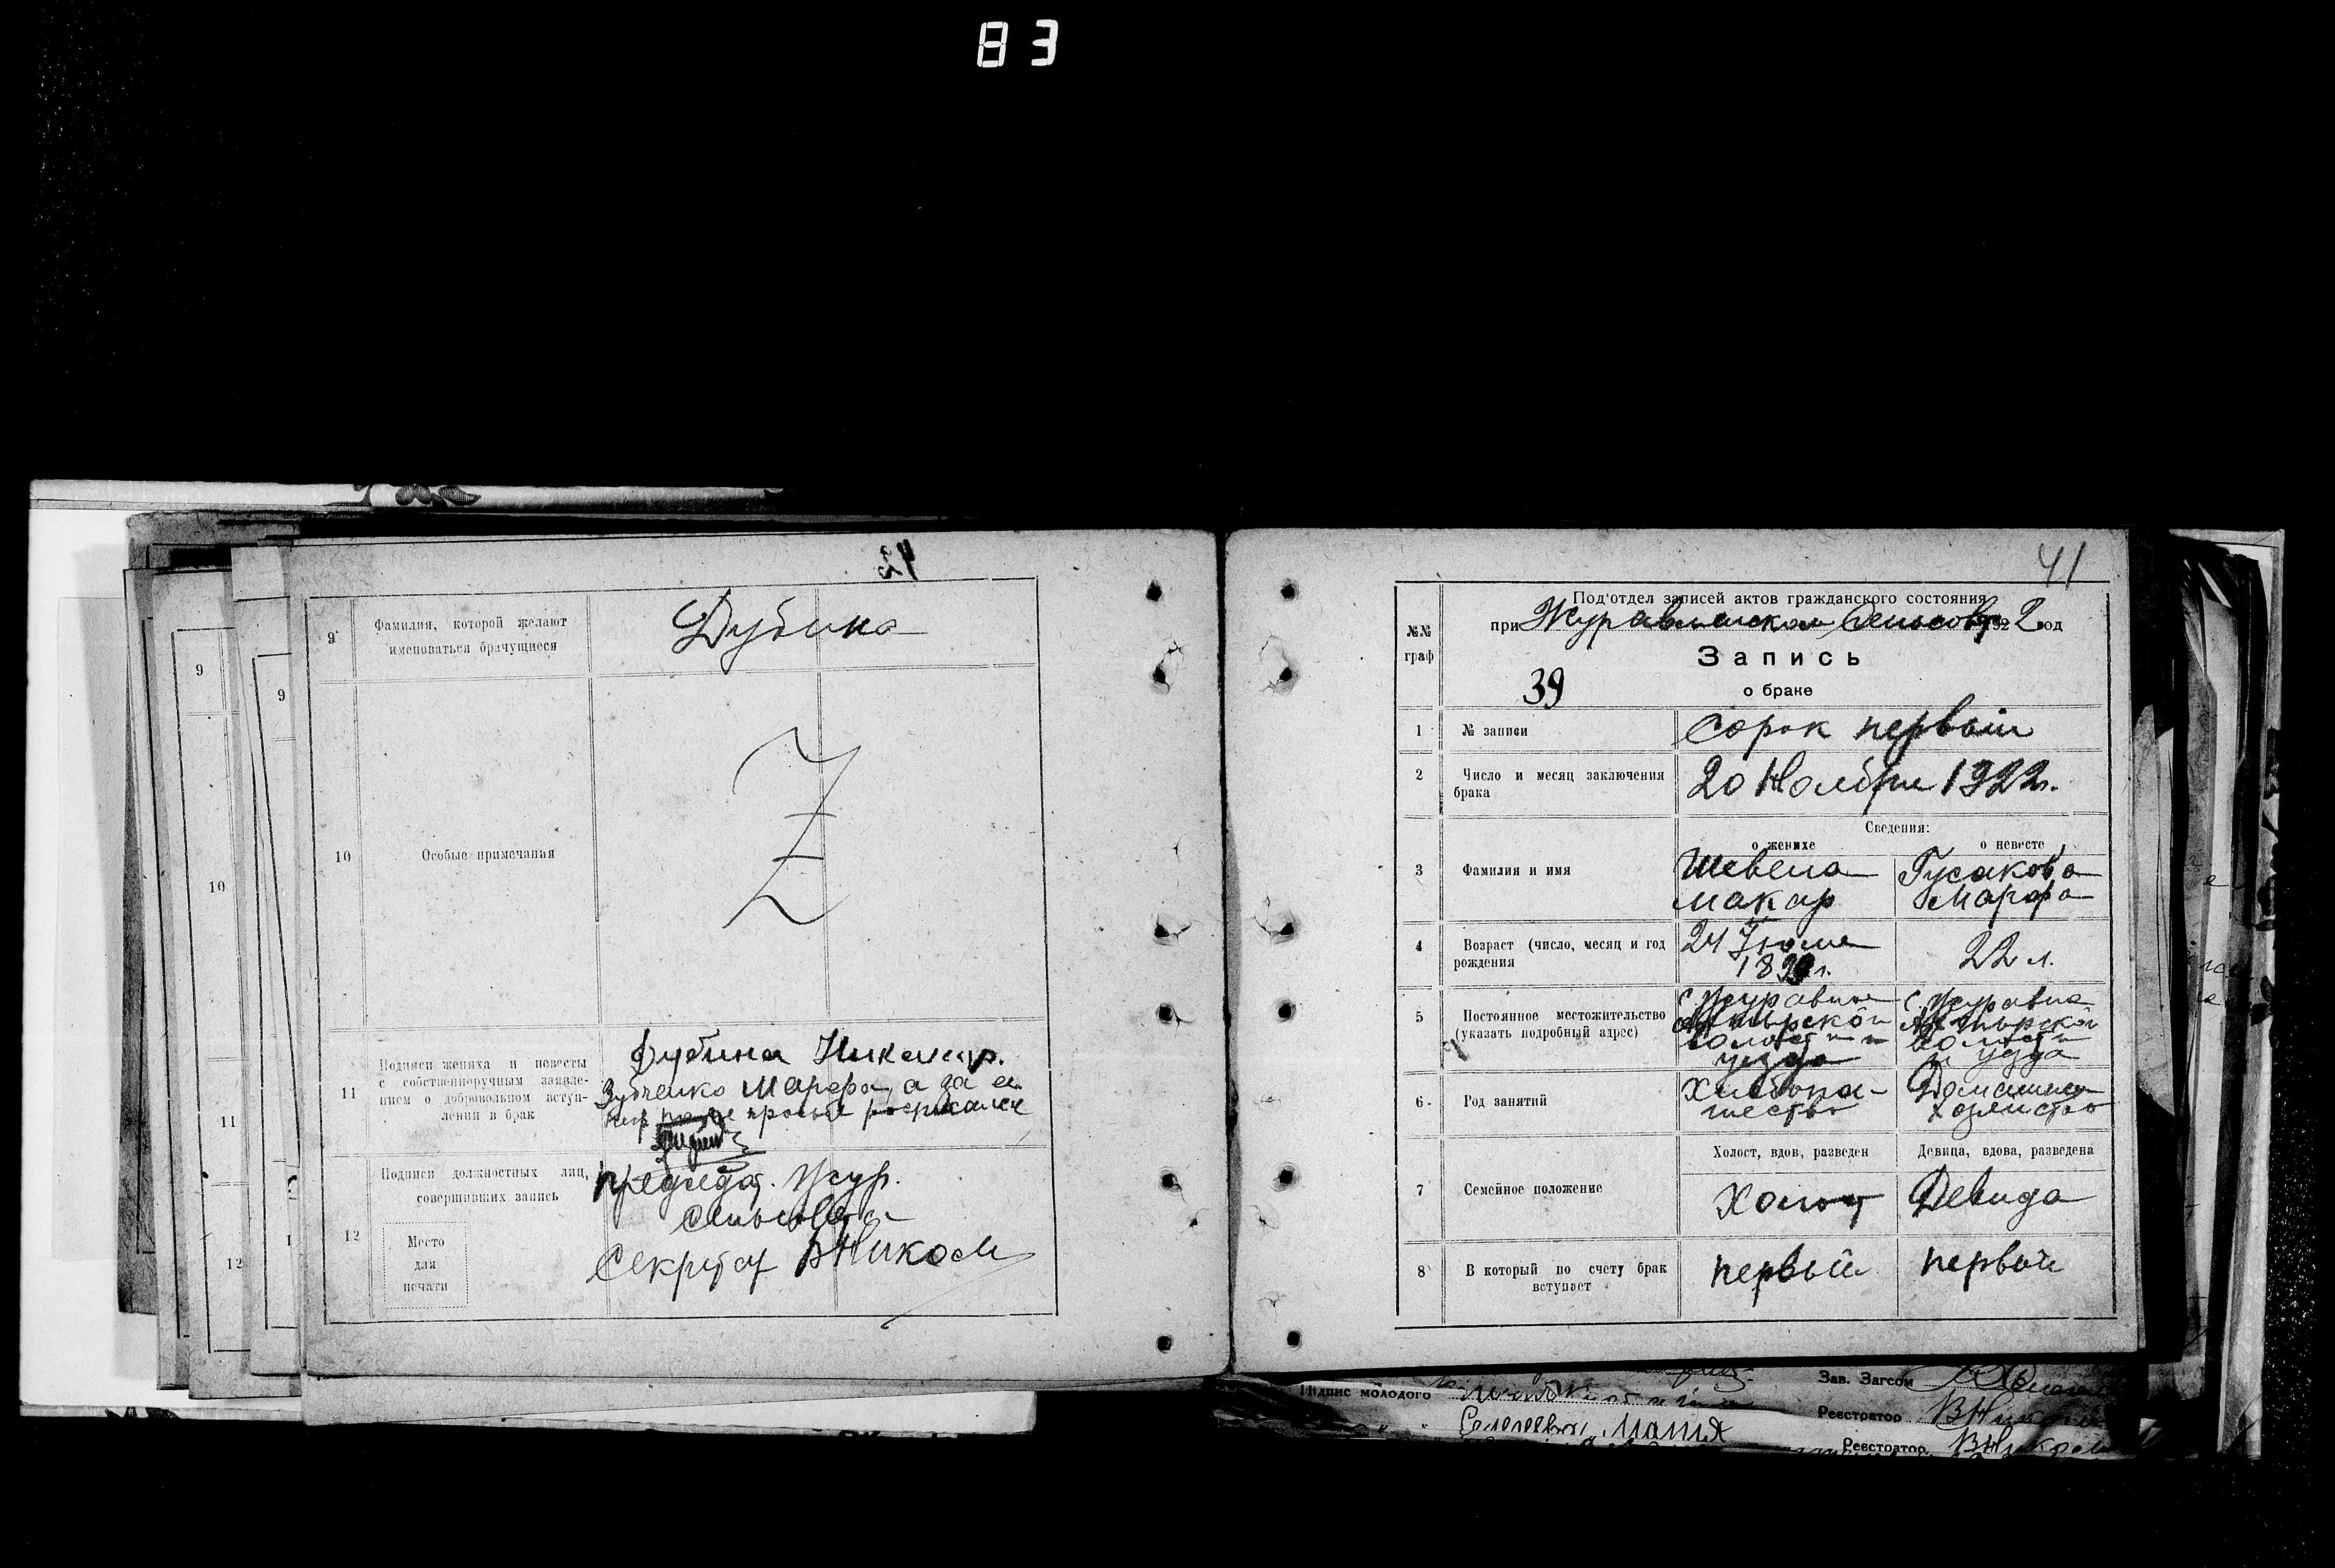 83
42
9
Фамилия, которой желают
именоваться брачущиеся
Дубина
10
Особые примечания
Z
11
Подписи жениха и невесты
с собственноручным заявле-
нием о добровольном вступ-
лении в брак
Дубина Никанор.
Зубченко Марфа, а за ея
просьбе росписался
12
Подписи должностных лиц,
совершивших запись
Место
для
печати
Председат. Жур.
сельсовета
Секретар ВНиком
9
10
11
12
9
41
№№
граф
Под'отдел записей актов гражданского состояния
при Журавленском сельсовете 1922 год
Запись
39
о браке
1
№ записи
Сорок первый
2
Число и месяц заключения
брака
20 Ноября 1922 г.
Сведения:
о женихе
о невесте
3
Фамилия и имя
Шевела
Макар
Гусакова
Марфа
4
Возраст (число, месяц и год
рождения
24 Июля
22 л.
5
Постоянное местожительство
(указать подробный адрес)
с. Журавное
Ахтырской
волости и
уезда
с. Журавна
Ахтырской
волости
и уезда
6.
Род занятий
Хлебопа-
шество
Домашнее
хозяйство
Холост, вдов, разведен
Девица, вдова, разведена
7
Семейное положение
Холост
Девица
8
В который по счету брак
вступает
первый
первый
Підпис молодого
Зав. Загсом
Реєстратор
Реєстратор